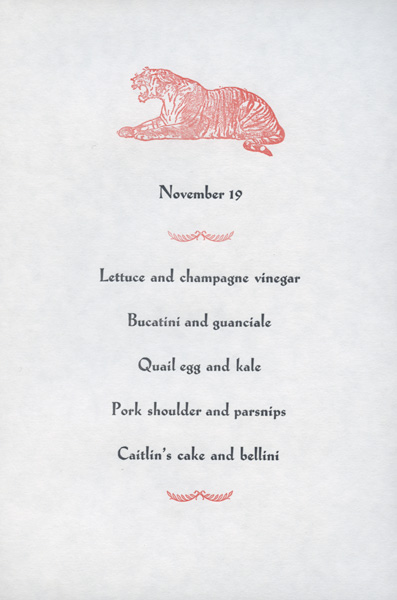 November 19
Lettuce and champagne vinegar
Bucatini and guanciale
Quail egg and kale
Pork shoulder and parsnips
Caitlin's cake and bellini